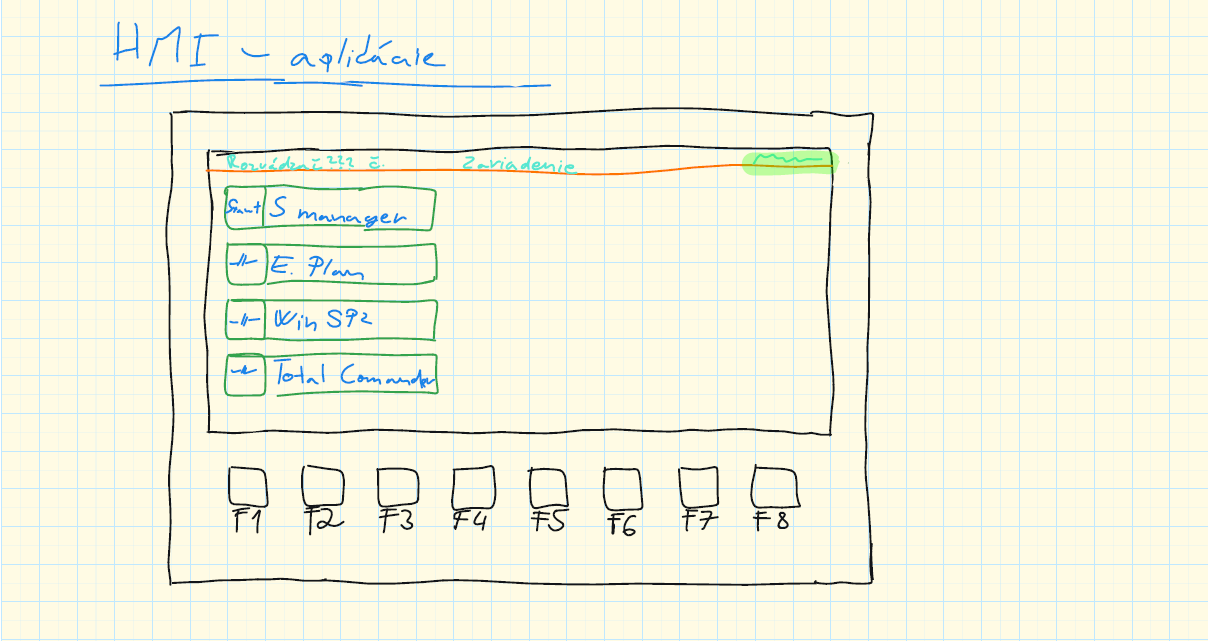 HMI - aplikácie
Rozvádzač ??? č. Zariadenie
Start S manager
-||- E. Plan
-||- Win SP2
-||- Total Comander
F1 F2 F3 F4 F5 F6 F7 F8